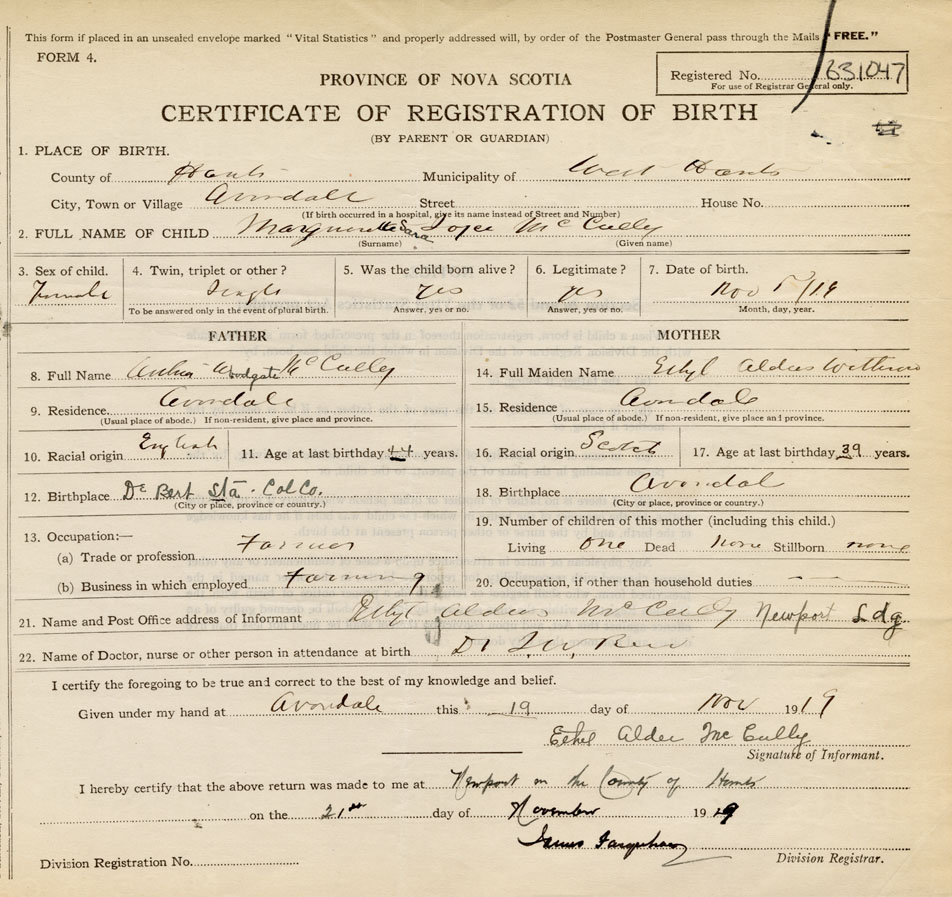 This form if placed in an unsealed envelope marked "Vital Statistics" and properly addressed will, by order of the Postmaster General pass through the Mails "FREE."
FORM 4.
PROVINCE OF NOVA SCOTIA
Registered No. 631047
For use of Registrar General only.
CERTIFICATE OF REGISTRATION OF BIRTH
(BY PARENT OR GUARDIAN)
1. PLACE OF BIRTH.
County of Hants Municipality of West Hants
City, Town or Village Avondale Street House No.
(If birth occurred in a hospital, give its name instead of Street and Number)
2. FULL NAME OF CHILD Marguerite Sara Joyce McCully
(Surname) (Given name)
3. Sex of child. 4. Twin, triplet or other? 5. Was the child born alive? 6. Legitimate? 7. Date of birth.
Female Single yes yes Nov 5/19
To be answered only in the event of plural birth. Answer, yes or no. Answer, yes or no. Month, day, year.
FATHER MOTHER
8. Full Name Arthur Woodgate McCully 14. Full Maiden Name Ethyl Aldus Withrow
9. Residence Avondale 15. Residence Avondale
(Usual place of abode.) If non-resident, give place and province. (Usual place of abode.) If non-resident, give place and province.
10. Racial origin English 11. Age at last birthday 44 years. 16. Racial origin Scotch 17. Age at last birthday 39 years.
12. Birthplace De Bert Sta. Col Co. 18. Birthplace Avondal
(City or place, province or country.) (City or place, province or country.)
13. Occupation:— 19. Number of children of this mother (including this child.)
(a) Trade or profession Farmer Living one Dead none Stillborn none
(b) Business in which employed Farming 20. Occupation, if other than household duties
21. Name and Post Office address of Informant Ethyl Aldus McCully Newport Ldg
22. Name of Doctor, nurse or other person in attendance at birth Dr
I certify the foregoing to be true and correct to the best of my knowledge and belief.
Given under my hand at Avondale this 19 day of Nov 1919
Ethel Alder McCully
Signature of Informant.
I hereby certify that the above return was made to me at Newport in the County of Hants
on the 21st day of November 1919
James Farquhar
Division Registration No. Division Registrar.